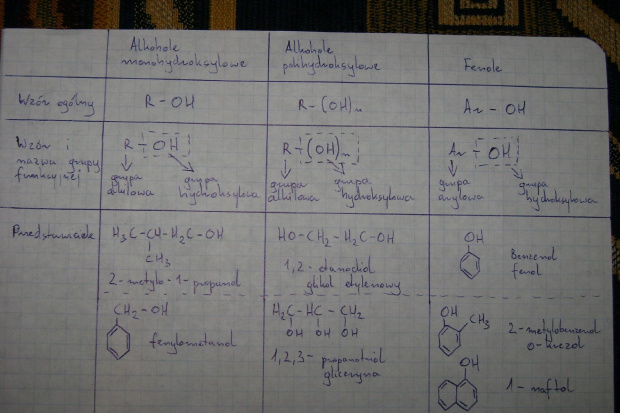 Alkohole monohydroksylowe
Alkohole polihydroksylowe
Fenole
Wzór ogólny
R-OH
R-(OH)n
Ar-OH
Wzór i nazwa grupy funkcyjnej
R-OH
grupa alkilowa
grupa hydroksylowa
R-(OH)n
grupa alkilowa
grupa hydroksylowa
Ar-OH
grupa arylowa
grupa hydroksylowa
H3C-CH-H2C-OH
CH3
2-metylo-1-propanol
HO-CH2-H2C-OH
1,2-etanodiol
glikol etylenowy
OH
Benzenol
fenol
CH2-OH
fenylometanol
H2C-HC-CH2
OH OH OH
1,2,3-propanotriol
gliceryna
OH
CH3
2-metylobenzenol
o-krezol
OH
1-naftol